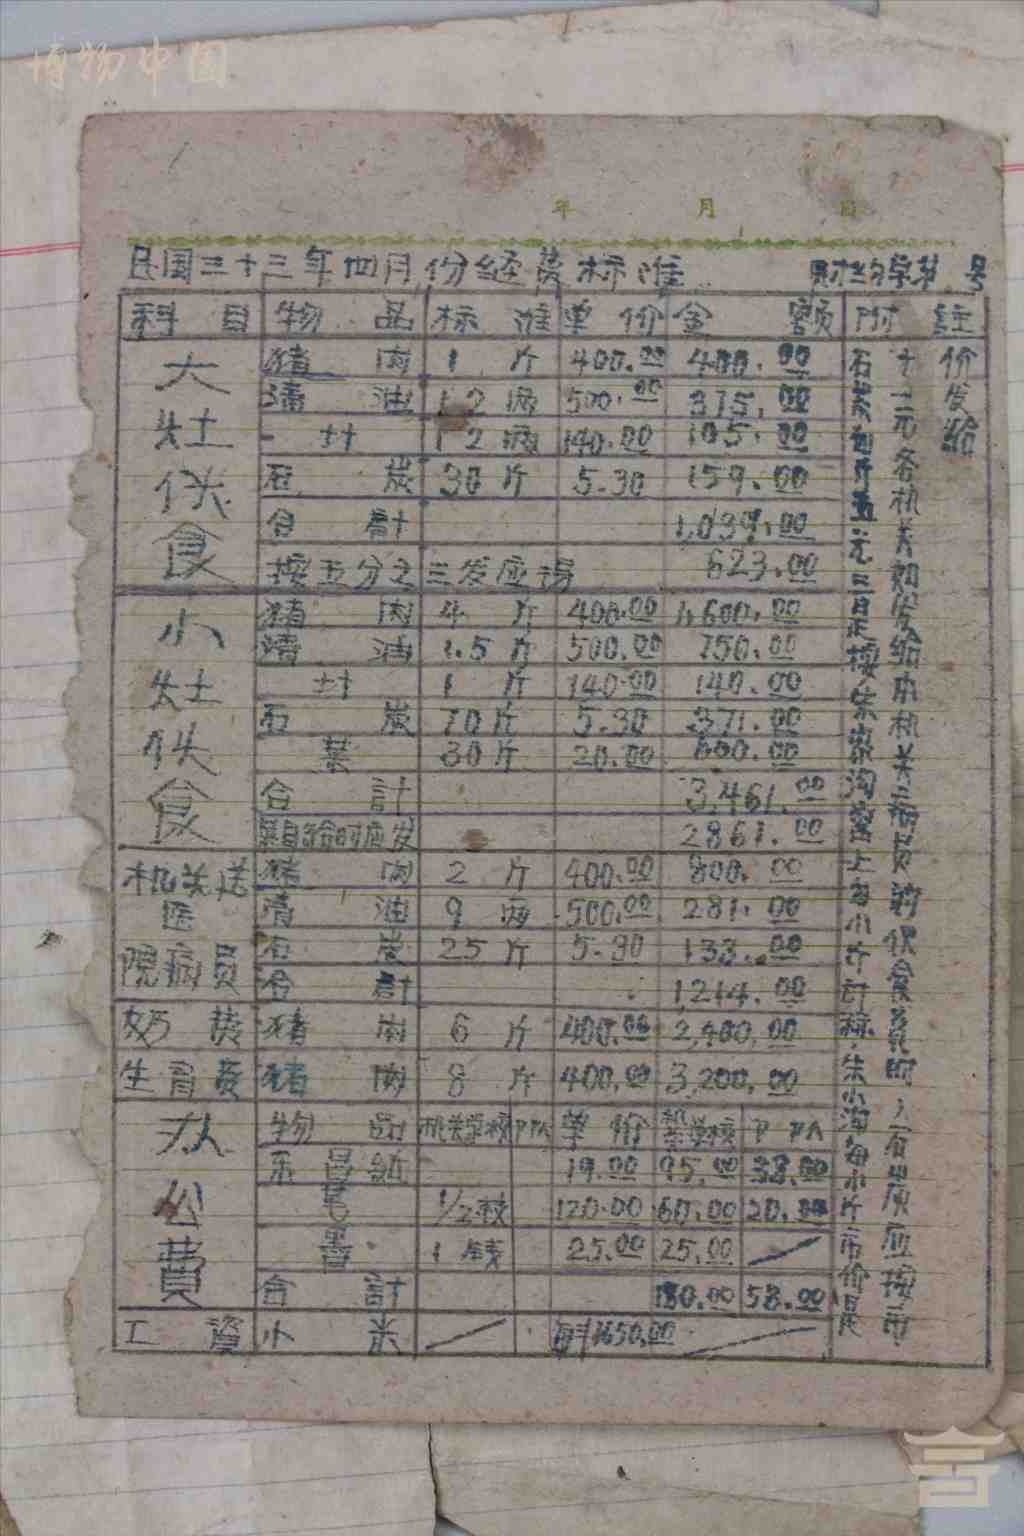 博物中国
年 月 日
民国三十三年四月份经费标准 财经字第 号
科目 物品 标准 单价 金额 附註
大灶伙食 猪肉 1斤 400.00 400.00
清油 12两 500.00 375.00
卄 12两 140.00 105.00
石炭 30斤 5.30 159.00
合計 1,039.00
按五分之三发应得 623.00
小灶伙食 猪肉 4斤 400.00 1,600.00
清油 1.5斤 500.00 750.00
卄 1斤 140.00 140.00
石炭 70斤 5.30 371.00
菜 30斤 20.00 600.00
合計 3,461.00
菜自给时应发 2861.00
机关送医院病员 猪肉 2斤 400.00 800.00
清油 9两 500.00 281.00
石炭 25斤 5.30 133.00
合計 1214.00
奶费 猪肉 6斤 400.00 2,400.00
生育费 猪肉 8斤 400.00 3,200.00
办公費 物品 机关学校 部队 单价 机关学校 部队
东昌紙 19.00 95.00 38.00
笔 1/2枝 120.00 60.00 20.00
墨 1钱 25.00 25.00
合計 180.00 58.00
工資 小米 每斗1650.00
石炭每斤五元三是按朱家沟窑上每小斤计称朱小沟每小斤市价是
十二元各机关如发给本机关病员的伙食费时,石炭应按市
价发给